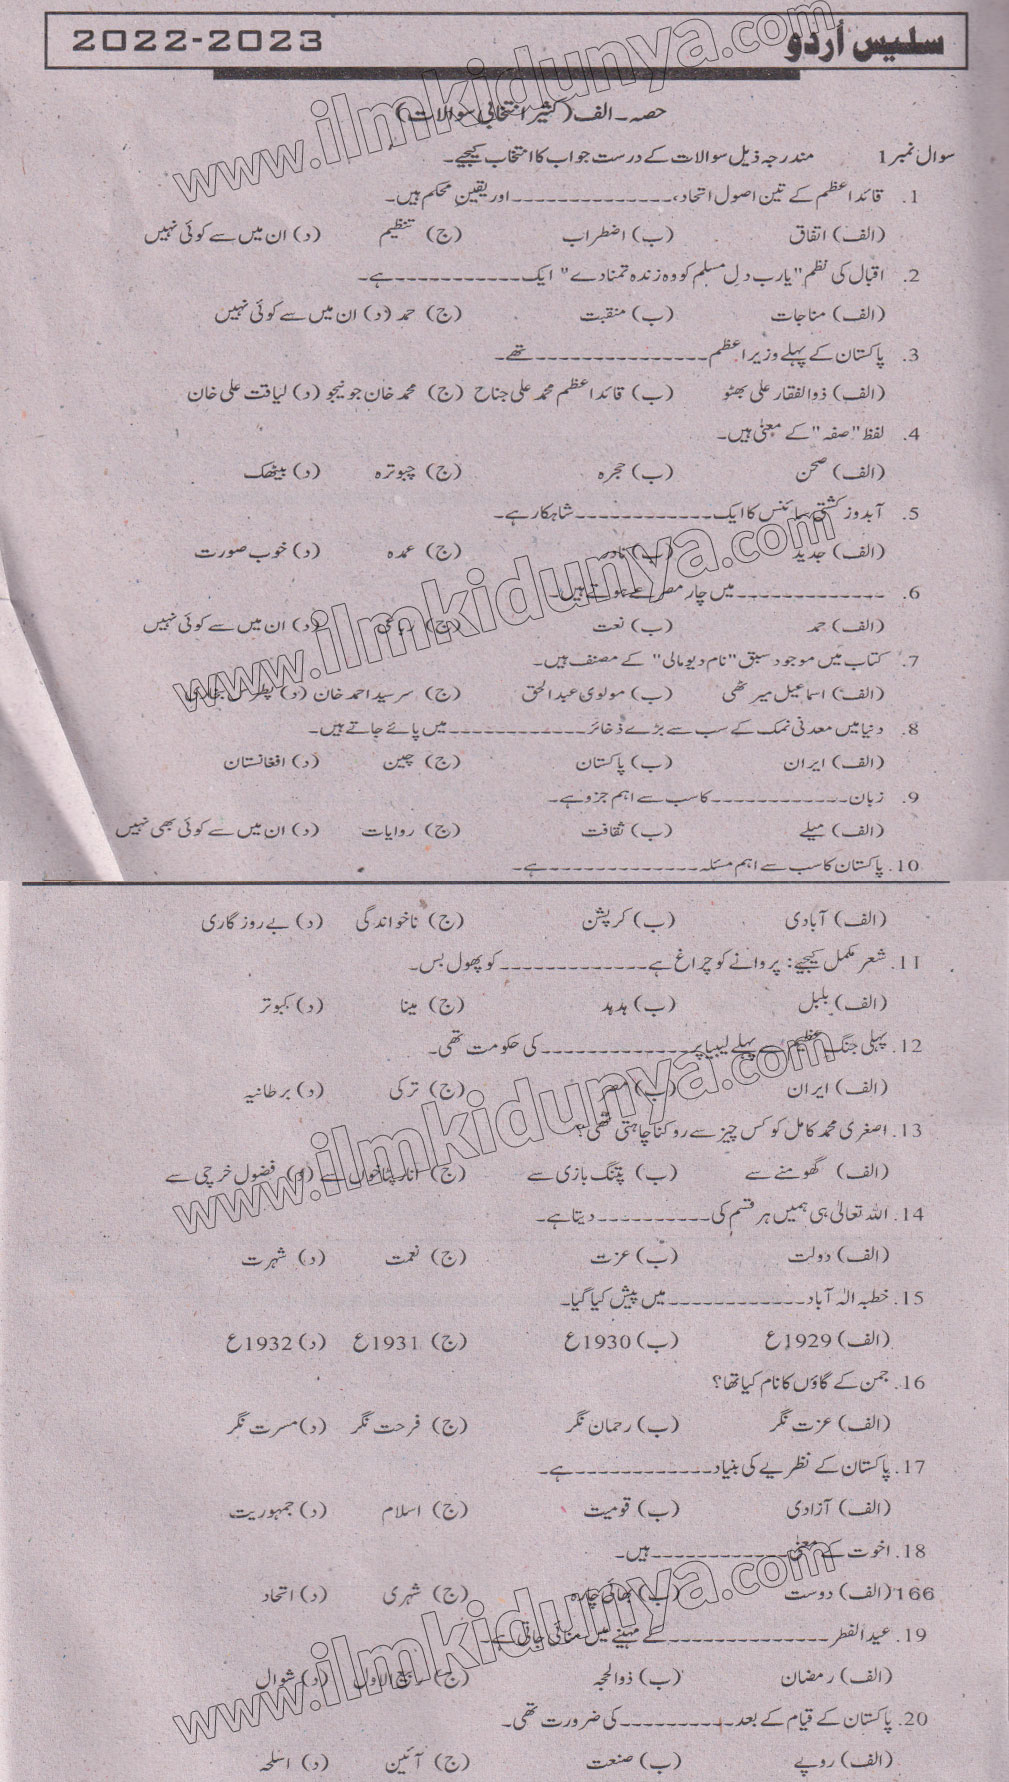 سلیس اُردو 2022-2023
حصہ ۔ الف (کثیر انتخابی سوالات)
سوال نمبر 1 مندرجہ ذیل سوالات کے درست جواب کا انتخاب کیجیے۔
1. قائد اعظم کے تین اصول اتحاد، ـــــــــــــ اور یقین محکم ہیں۔
(الف) اتفاق (ب) اضطراب (ج) تنظیم (د) ان میں سے کوئی نہیں
2. اقبال کی نظم "یارب دل مسلم کو وہ زندہ تمنا دے" ایک ـــــــــــــ ہے۔
(الف) مناجات (ب) منقبت (ج) حمد (د) ان میں سے کوئی نہیں
3. پاکستان کے پہلے وزیر اعظم ـــــــــــــ تھے۔
(الف) ذوالفقار علی بھٹو (ب) قائد اعظم محمد علی جناح (ج) محمد خان جونیجو (د) لیاقت علی خان
4. لفظ "صفہ" کے معنی ہیں۔
(الف) صحن (ب) حجرہ (ج) چبوترہ (د) بیٹھک
5. آبدوز کشتی سائنس کا ایک ـــــــــــــ شاہکار ہے۔
(الف) جدید (ب) نادر (ج) عمدہ (د) خوب صورت
6. ـــــــــــــ میں چار مصرعے ہوتے ہیں۔
(الف) حمد (ب) نعت (ج) رباعی (د) ان میں سے کوئی نہیں
7. کتاب میں موجود سبق "نام دیو مالی" کے مصنف ہیں۔
(الف) اسماعیل میرٹھی (ب) مولوی عبدالحق (ج) سرسید احمد خان (د) پطرس بخاری
8. دنیا میں معدنی نمک کے سب سے بڑے ذخائر ـــــــــــــ میں پائے جاتے ہیں۔
(الف) ایران (ب) پاکستان (ج) چین (د) افغانستان
9. زبان ـــــــــــــ کا سب سے اہم جزو ہے۔
(الف) میلے (ب) ثقافت (ج) روایات (د) ان میں سے کوئی بھی نہیں
10. پاکستان کا سب سے اہم مسئلہ ـــــــــــــ ہے۔
(الف) آبادی (ب) کرپشن (ج) ناخواندگی (د) بے روزگاری
11. شعر مکمل کیجیے: پروانے کو چراغ ہے ـــــــــــــ کو پھول بس۔
(الف) بلبل (ب) ہدہد (ج) مینا (د) کبوتر
12. پہلی جنگ عظیم سے پہلے لیبیا پر ـــــــــــــ کی حکومت تھی۔
(الف) ایران (ب) مصر (ج) ترکی (د) برطانیہ
13. اصغری محمد کامل کو کس چیز سے روکنا چاہتی تھی؟
(الف) گھومنے سے (ب) پتنگ بازی سے (ج) انار پٹاخوں سے (د) فضول خرچی سے
14. اللہ تعالیٰ ہی ہمیں ہر قسم کی ـــــــــــــ دیتا ہے۔
(الف) دولت (ب) عزت (ج) نعمت (د) شہرت
15. خطبہ الٰہ آباد ـــــــــــــ میں پیش کیا گیا۔
(الف) 1929ع (ب) 1930ع (ج) 1931ع (د) 1932ع
16. جمن کے گاؤں کا نام کیا تھا؟
(الف) عزت نگر (ب) رحمان نگر (ج) فرحت نگر (د) مسرت نگر
17. پاکستان کے نظریے کی بنیاد ـــــــــــــ ہے۔
(الف) آزادی (ب) قومیت (ج) اسلام (د) جمہوریت
18. اخوت کے معنی ـــــــــــــ ہیں۔
166 (الف) دوست (ب) بھائی چارہ (ج) شہری (د) اتحاد
19. عیدالفطر ـــــــــــــ کے مہینے میں منائی جاتی ہے۔
(الف) رمضان (ب) ذوالحجہ (ج) ربیع الاول (د) شوال
20. پاکستان کے قیام کے بعد ـــــــــــــ کی ضرورت تھی۔
(الف) روپے (ب) صنعت (ج) آئین (د) اسلحہ
www.ilmkidunya.com
www.ilmkidunya.com
www.ilmkidunya.com
www.ilmkidunya.com